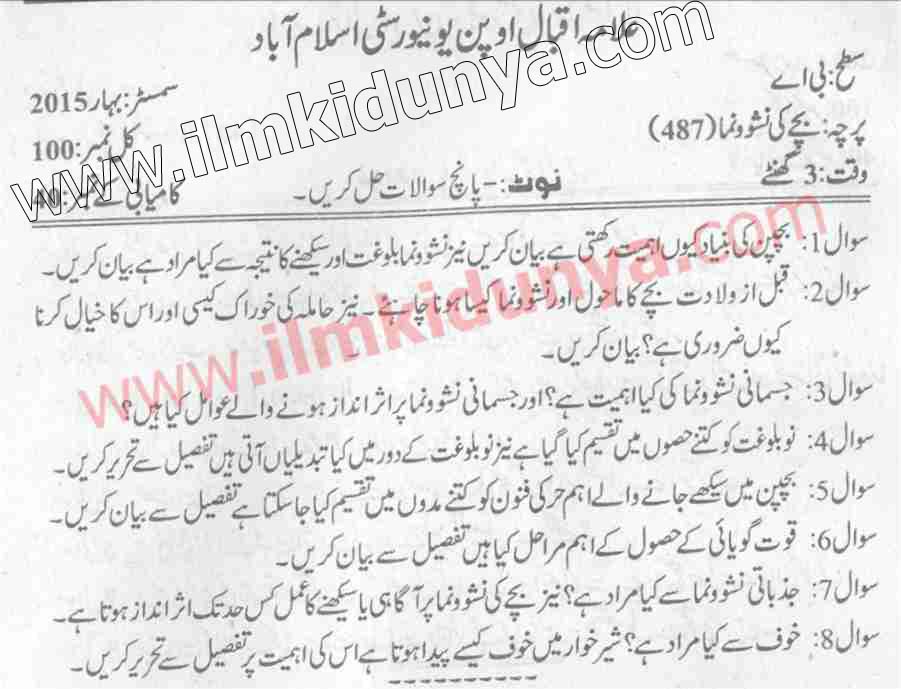 علامہ اقبال اوپن یونیورسٹی اسلام آباد
سطح: بی اے
سمسٹر: بہار 2015
پرچہ: بچے کی نشوونما (487)
کل نمبر: 100
وقت: 3 گھنٹے
نوٹ:- پانچ سوالات حل کریں۔
کامیابی کے نمبر: 40
www.ilmkidunya.com
سوال 1: بچپن کی بنیاد کیوں اہمیت رکھتی ہے بیان کریں نیز نشوونما بلوغت اور سیکھنے کا نتیجہ سے کیا مراد ہے بیان کریں۔
سوال 2: قبل از ولادت بچے کا ماحول اور نشوونما کیسا ہونا چاہئے۔ نیز حاملہ کی خوراک کیسی اور اس کا خیال کرنا
کیوں ضروری ہے؟ بیان کریں۔
سوال 3: جسمانی نشوونما کی کیا اہمیت ہے؟ اور جسمانی نشوونما پر اثر انداز ہونے والے عوامل کیا ہیں؟
سوال 4: نوبلوغت کو کتنے حصوں میں تقسیم کیا گیا ہے نیز نوبلوغت کے دور میں کیا تبدیلیاں آتی ہیں تفصیل سے تحریر کریں۔
سوال 5: بچپن میں سیکھے جانے والے اہم حرکی فنون کو کتنے مدوں میں تقسیم کیا جا سکتا ہے تفصیل سے بیان کریں۔
سوال 6: قوت گویائی کے حصول کے اہم مراحل کیا ہیں تفصیل سے بیان کریں۔
سوال 7: جذباتی نشوونما سے کیا مراد ہے؟ نیز بچے کی نشوونما پر آگاہی یا سیکھنے کا عمل کس حد تک اثر انداز ہوتا ہے۔
سوال 8: خوف سے کیا مراد ہے؟ شیر خوار میں خوف کیسے پیدا ہوتا ہے اس کی اہمیت پر تفصیل سے تحریر کریں۔
www.ilmkidunya.com